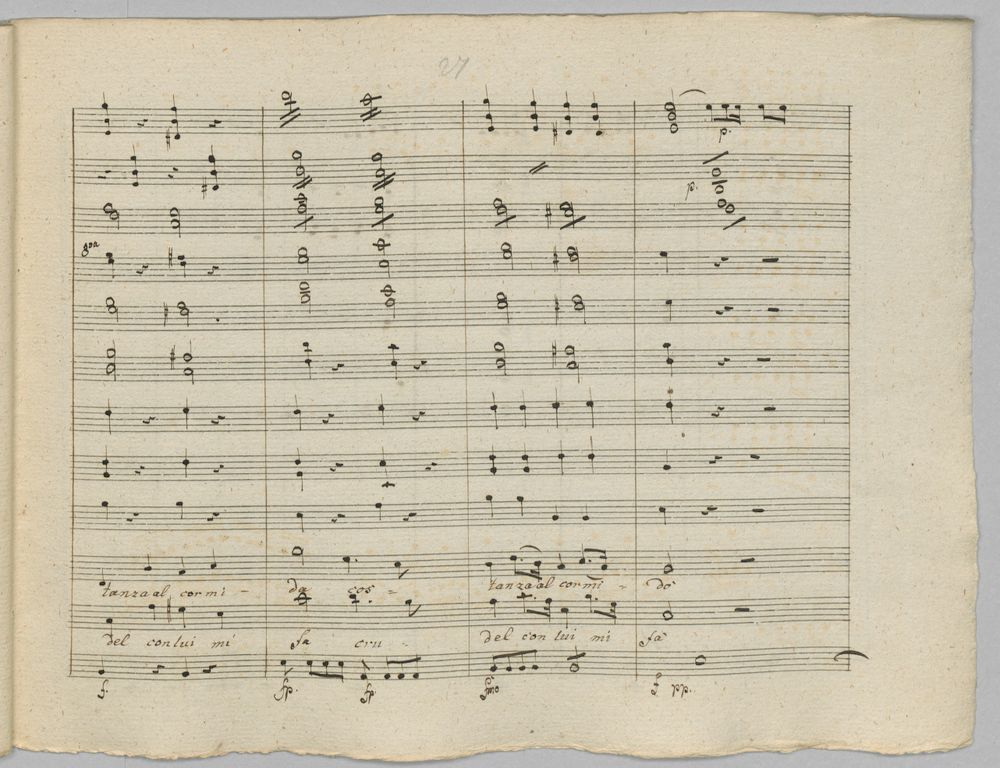 27
p.
p.
tanza al cor mi - da cos = tanza al cor mi - do
del con lui mi fa cru - del con lui mi fa
f. fp. fp. fmo f pp.